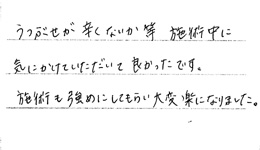 うつぶせが辛くないか等 施術中に
気にかけていただいて良かったです。
施術も強めにしてもらい大変楽になりました。